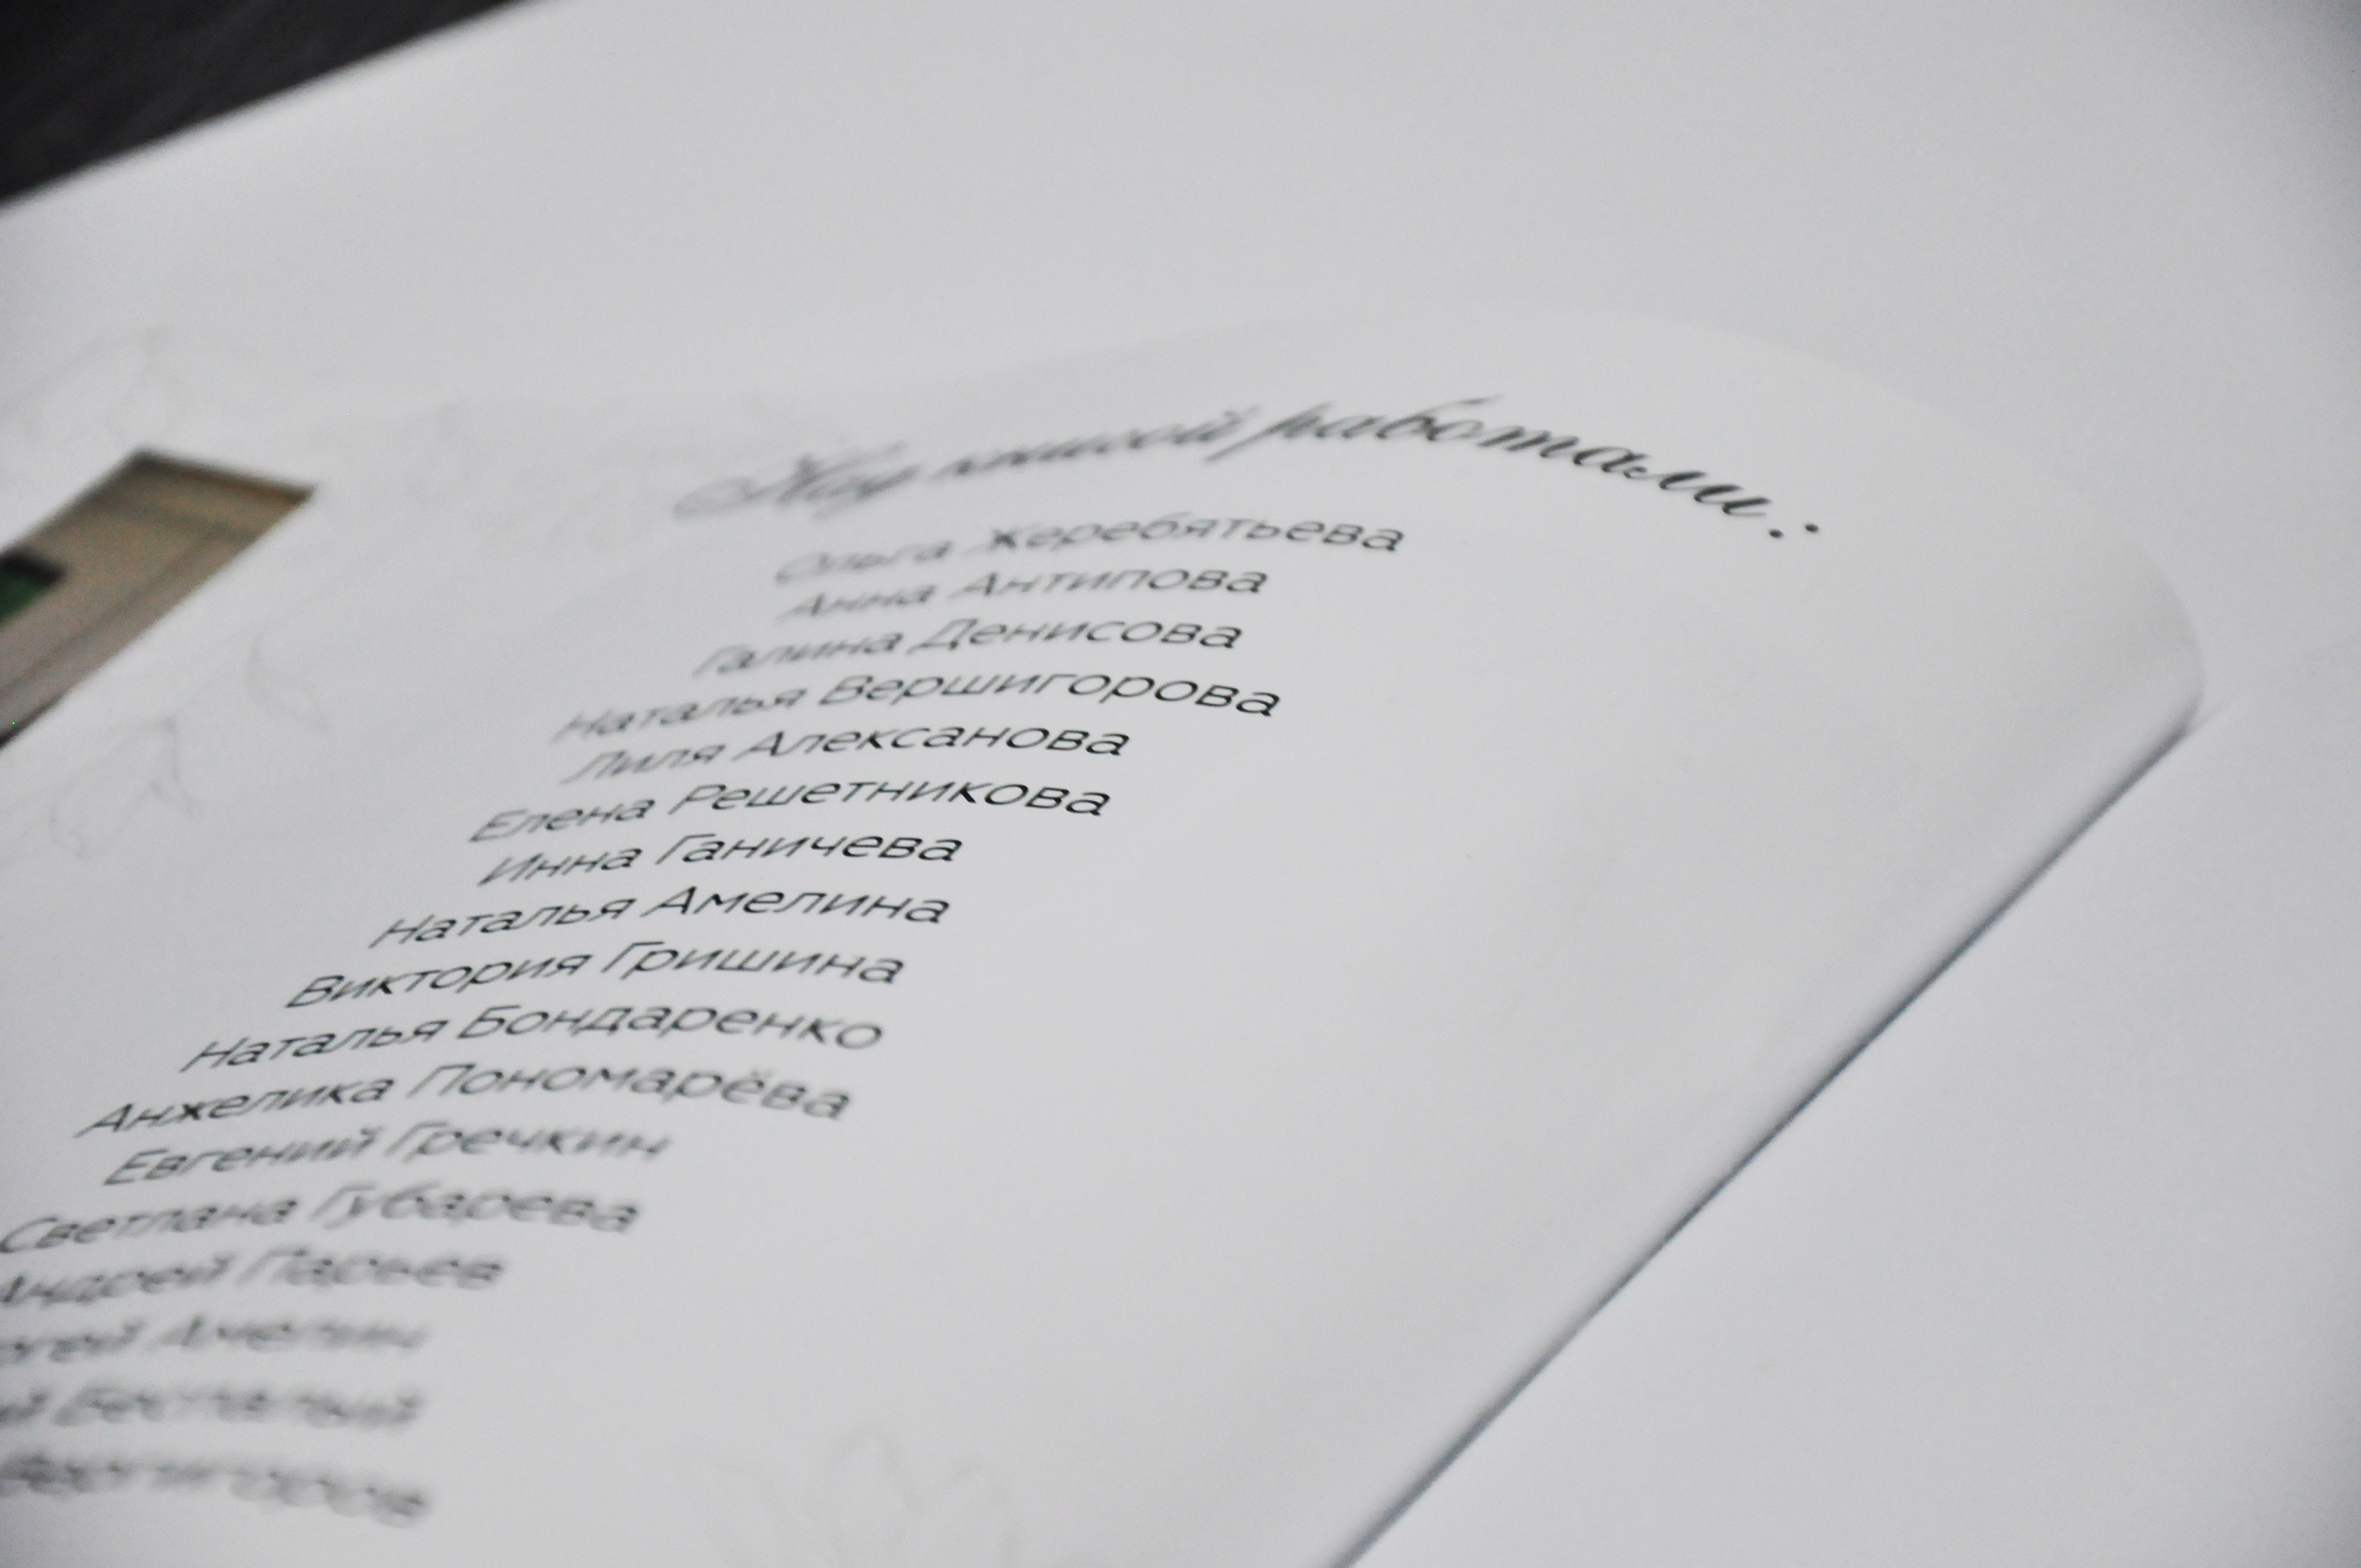 Над книгой работали:
Ольга Жеребятьева
Анна Антипова
Галина Денисова
Наталья Вершигорова
Лиля Алексанова
Елена Решетникова
Инна Ганичева
Наталья Амелина
Виктория Гришина
Наталья Бондаренко
Анжелика Пономарёва
Евгений Гречкин
Светлана Губарева
Андрей
Амелин